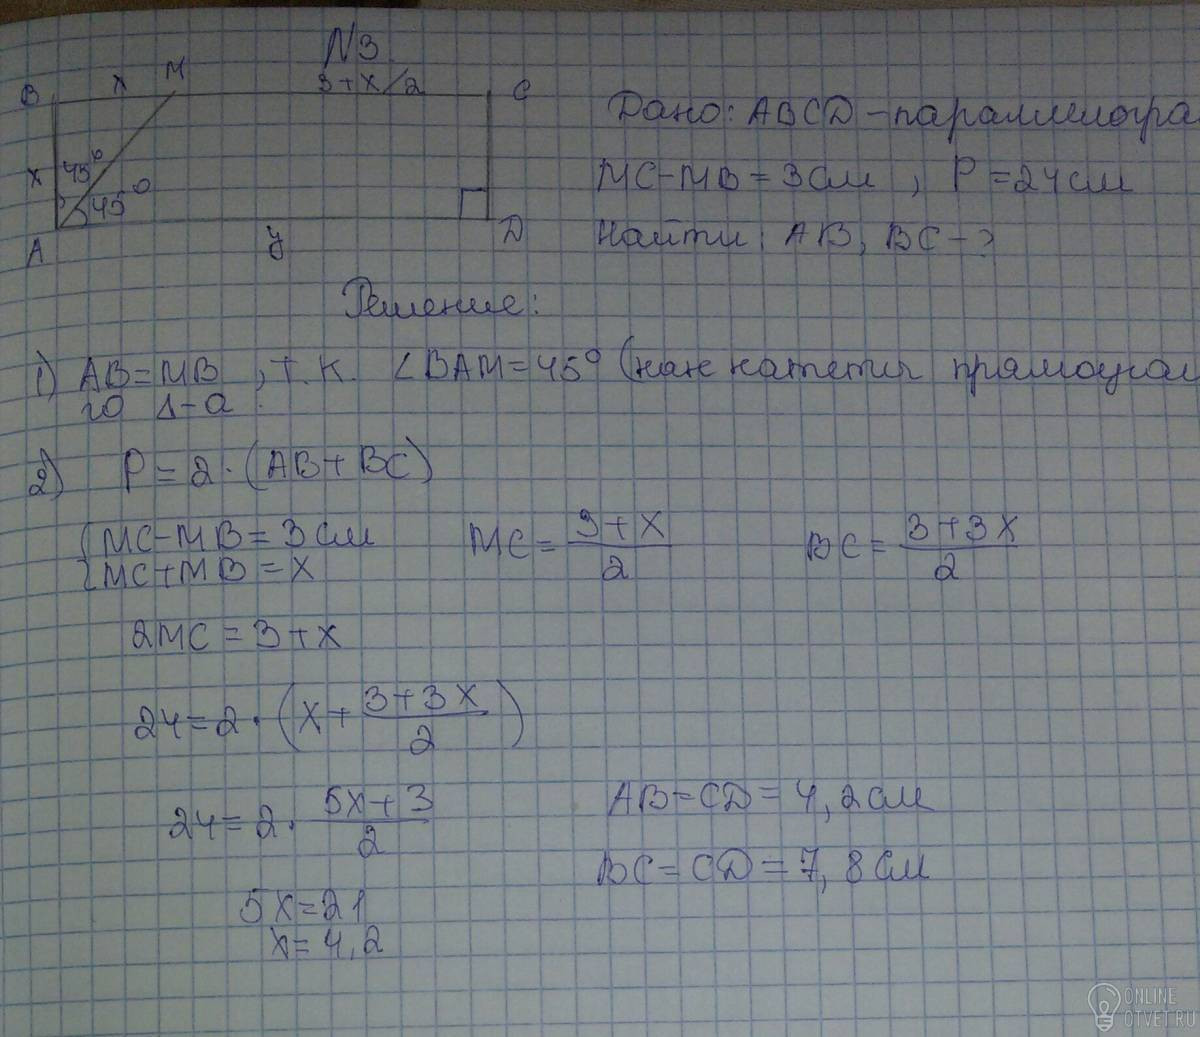 N3
B x M 3+x/2 C
x 45°
45°
A y D
Дано: ABCD – параллелогра
MC–MB = 3 см, P = 24 см
Найти: AB, BC – ?
Решение:
1) AB = MB, т.к. ∠BAM = 45° (как катеты прямоугол
го Δ-а.
2) P = 2·(AB + BC)
{MC–MB = 3 см MC = 3+x/2 BC = 3+3x/2
{MC+MB = x
2MC = 3+x
24 = 2·(x + 3+3x/2)
24 = 2· 5x+3/2 AB = CD = 4,2 см
BC = CD = 7,8 см
5x = 21
x = 4,2
ONLINE
OTVET.RU